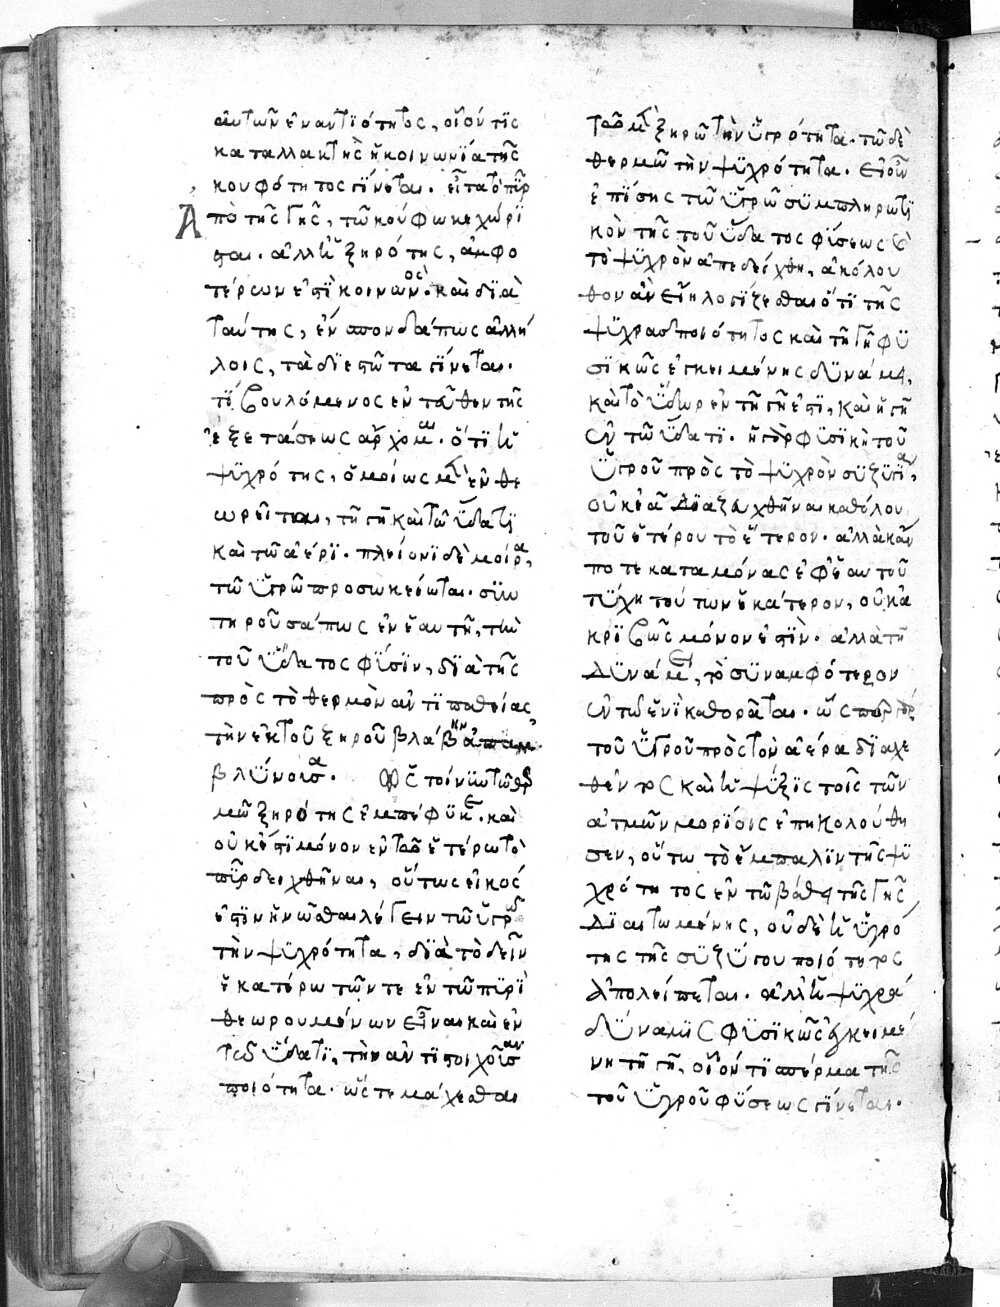 αὐτῶν ἐναντϊότητος, οἷόν τϊς
καταλλακτὴς ἡ κοινωνΐα τῆς
κουφότητος γΐνεται. εἶτα τὸ πῦρ
Ἀπὸ τῆς γῆς, τῶ κούφω κεχώρϊ
σται. ἀλλ' ἡ ξηρότης, ἀμφο
τέρων ἐπΐκοινων οὖσα. καὶ δϊὰ
ταύτης, ἐν σπονδα πως ἀλλή
λοις, τὰ δϊεστῶτα γΐνεται.
τΐ βουλόμενος ἐντεῦθεν τῆς
ἐξετάσεως ἄρχομαι. ὅτϊ ἡ
ψϋχρότης, ὁμοίως μὲν ἐνθε
ωρεῖται, τῆ γῆ καὶ τῶ ὕδατϊ
καὶ τῶ ἀέρϊ. πλείονϊ δὲ μοίρα,
τῶ ὑγρῶ προσωκείωται. συν
τηροῦσα πως ἐν ἑαυτῆ, τὴν
τοῦ ὕδατος φΰσϊν, δϊὰ τῆς
πρὸς τὸ θερμὸν ἀντϊπαθείας
τὴν ἐκ τοῦ ξηροῦ βλάβην
βλΰνουσα. ὡς τοίνυν τῶ θερ
μῶ ξηρότης ἐμπέφϋκε. καὶ
οὐκ ἔστϊ μόνον ἐν τῶ ἑτέρω τὸ
πῦρ δειχθῆναι, οὕτως εἰκός
ἐστϊν ἡνῶσθαι λέγειν τῶ ὑγρῶ
τὴν ψϋχρότητα, δϊὰ τὸ δεῖν
ἑκατέρω τῶν τε ἐν τῶ πϋρϊ
θεωρουμένων εἶναι καὶ ἐν
τῶ ὕδατϊ, τὴν ἀντϊστοιχοῦσαν
ποιότητα. ὥστε μάχεσθαι
τῶ μὲν ξηρῶ τὴν ὑγρότητα. τῶ δὲ
θερμῶ τὴν ψϋχρότητα. εἰ οὖν
ἐπΐσης τῶ ὑγρῶ σϋμπληρωτϊ
κὸν τῆς τοῦ ὕδατος φΰσεως καὶ
τὸ ψϋχρὸν ἀπεδείχθη, ἀκόλου
θον ἂν εἴη λογΐζεσθαι ὅτϊ τῆς
ψϋχρᾶς ποιότητος καὶ τῆ γῆ φϋ
σϊκῶς ἐγκειμένης δϋνάμει,
καὶ τὸ ὕδωρ ἐν τῆ γῆ ἐστϊ, καὶ ἡ γῆ
ἐν τῶ ὕδατϊ. ἡ γὰρ φϋσϊκὴ τοῦ
ὑγροῦ πρὸς τὸ ψϋχρὸν σϋζϋγΐα,
οὐκ ἐᾶ διαζευχθῆναι καθόλου
τοῦ ἑτέρου τὸ ἕτερον. ἀλλὰ κἂν
ποτε καταμόνας ἐφ' ἑαυτοῦ
τΰχη τούτων ἑκάτερον, οὐκ ἀ
κρϊβῶς μόνον ἐστΐν. ἀλλὰ τῆ
δϋνάμει, τὸ σϋναμφότερον
ἐν τῶ ἑνϊ καθορᾶται. ὡς
τοῦ ὑγροῦ πρὸς τὸν ἀέρα δϊαχε
θέντος καὶ ἡ ψΰξϊς τοῖς τῶν
ἀτμῶν μορΐοις ἐπηκολούθη
σεν, οὕτω τὸ ἔμπαλϊν τῆς ψϋ
χρότητος ἐν τῶ βάθει τῆς γῆς
δϊαιτωμένης, οὐδὲ ἡ ὑγρό
της τῆς σϋζΰγου ποιότητος
ἀπολείπεται. ἀλλ' ἡ ψϋχρά
δΰναμϊς φϋσϊκῶς ἐγκειμέ
νη τῆ γῆ, οἷόν τϊ σπέρμα τῆς
τοῦ ὑγροῦ φΰσεως γΐνεται.